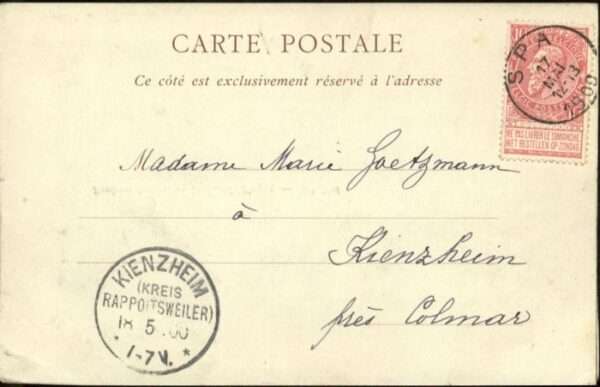 CARTE POSTALE
Ce côté est exclusivement réservé à l'adresse
SPA
17
MAI
12-13
1900
NE PAS LIVRER LE DIMANCHE
NIET BESTELLEN OP ZONDAG
Madame Marie Goetzmann
à
Kienzheim
près Colmar
KIENZHEIM
(KREIS
RAPPOLTSWEILER)
18 5 00
* 1-7V. *